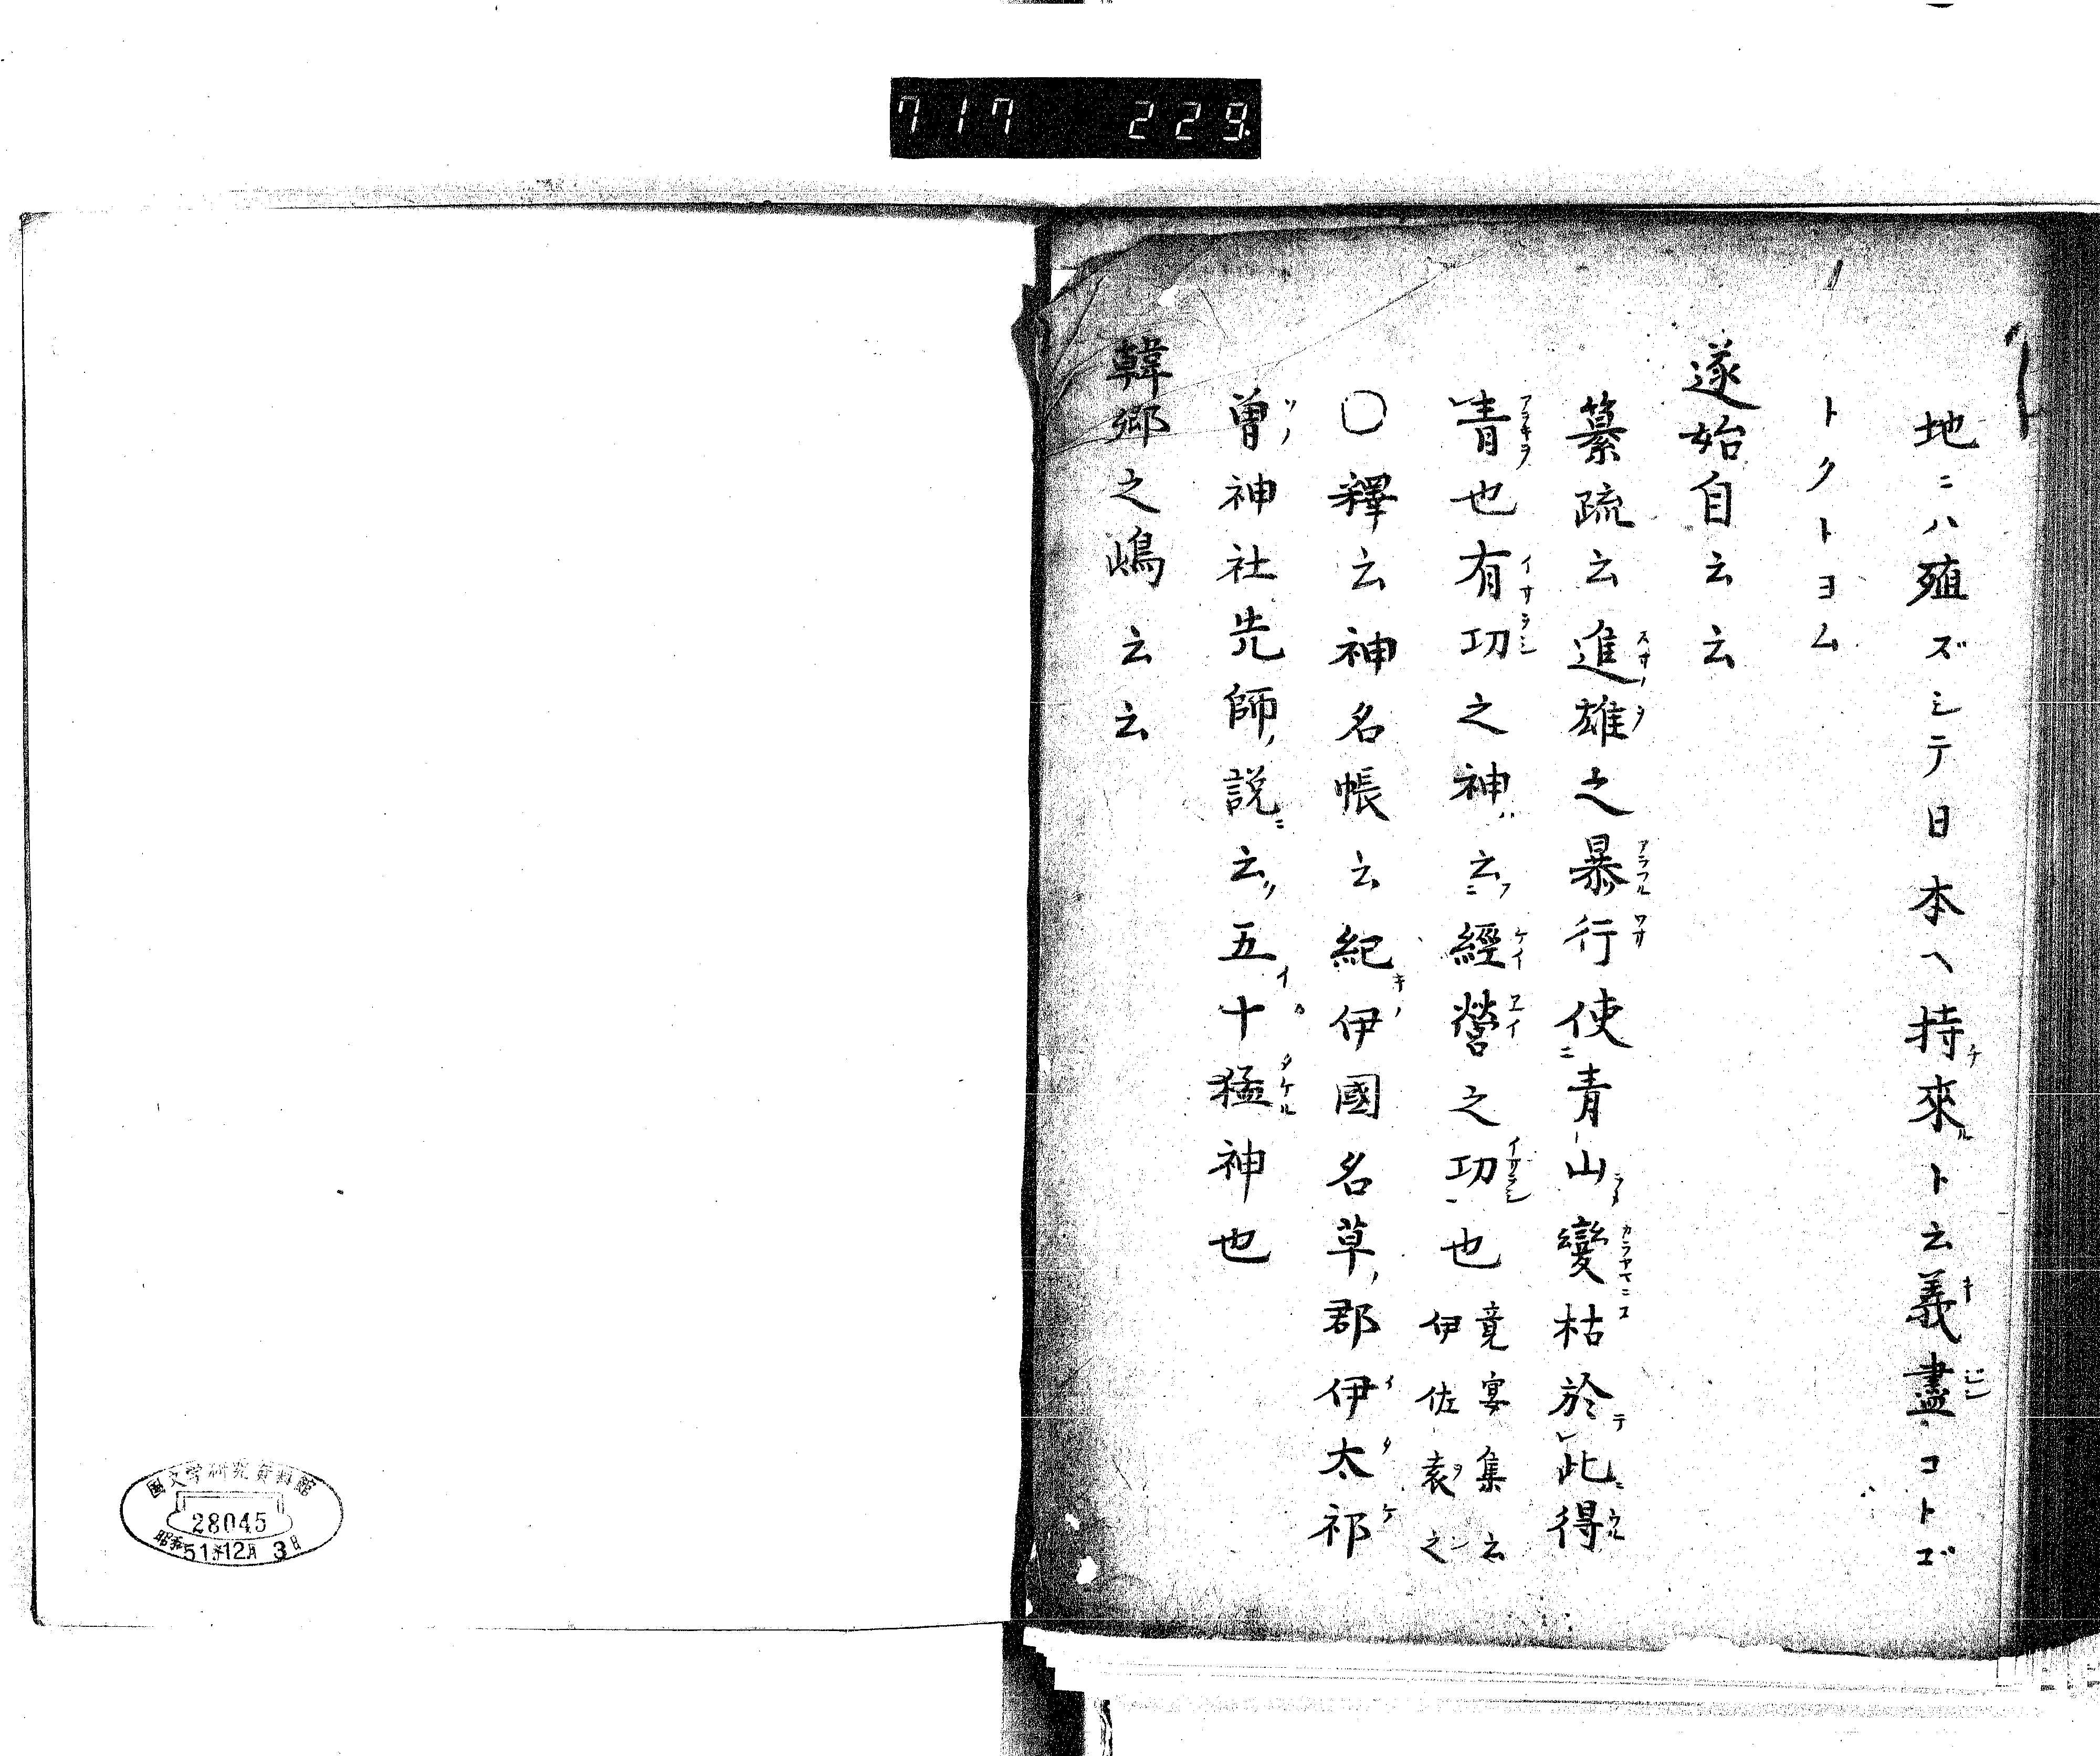 717 229
地ニハ殖ズシテ日本ヘ持來ト云義盡コトゴ
トクトヨム
遂始自云云
纂疏云進雄之暴行使青山變枯於此得
青也有功之神云經營之功也竟宴集云
伊佐袁之
〇釋云神名帳云紀伊國名草郡伊太祁
曽神社先師説云五十猛神也
韓郷之嶋云云
國文学研究資料館
28045
昭和51年12月3日